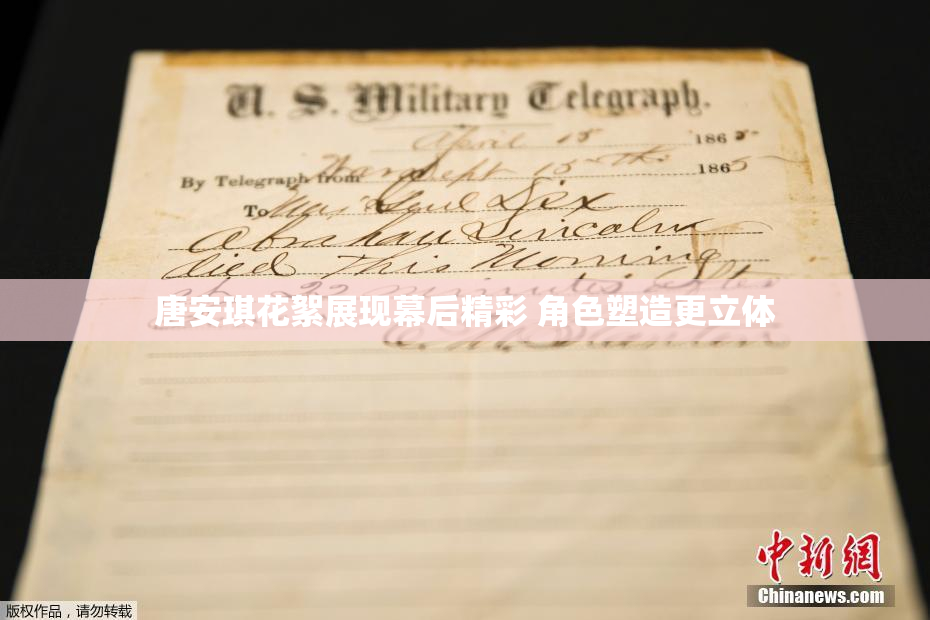 U. S. Military Telegraph.
April 15 1865
By Telegraph from War Dept 15th 1865
To Maj Genl Dix
Abraham Lincoln
died This Morning
at 22 minutes after
唐安琪花絮展现幕后精彩 角色塑造更立体
E. M. Stanton
中新网
Chinanews.com
版权作品，请勿转载